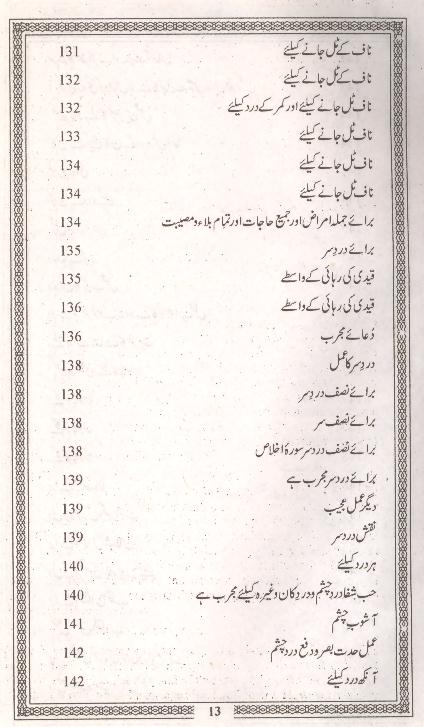 ناف کے ٹل جانے کیلئے 131
ناف کے ٹل جانے کیلئے 132
ناف ٹل جانے کیلئے اور کمر کے درد کیلئے 132
ناف ٹل جانے کیلئے 133
ناف ٹل جانے کیلئے 134
ناف ٹل جانے کیلئے 134
برائے جملہ امراض اور جمیع حاجات اور تمام بلاء و مصیبت 134
برائے دردِ سر 135
قیدی کی رہائی کے واسطے 135
قیدی کی رہائی کے واسطے 136
دُعائے مجرب 136
دردِ سر کا عمل 138
برائے نصف دردِ سر 138
برائے نصف سر 138
برائے نصف دردِ سر سورۂ اخلاص 138
برائے دردِ سر مجرب ہے 139
دیگر عمل عجیب 139
نقش دردِ سر 139
ہر درد کیلئے 140
حب شفا درد چشم و درد کان وغیرہ کیلئے مجرب ہے 140
آشوب چشم 141
عمل حدت بصر و دفع درد چشم 142
آنکھ درد کیلئے 142
13